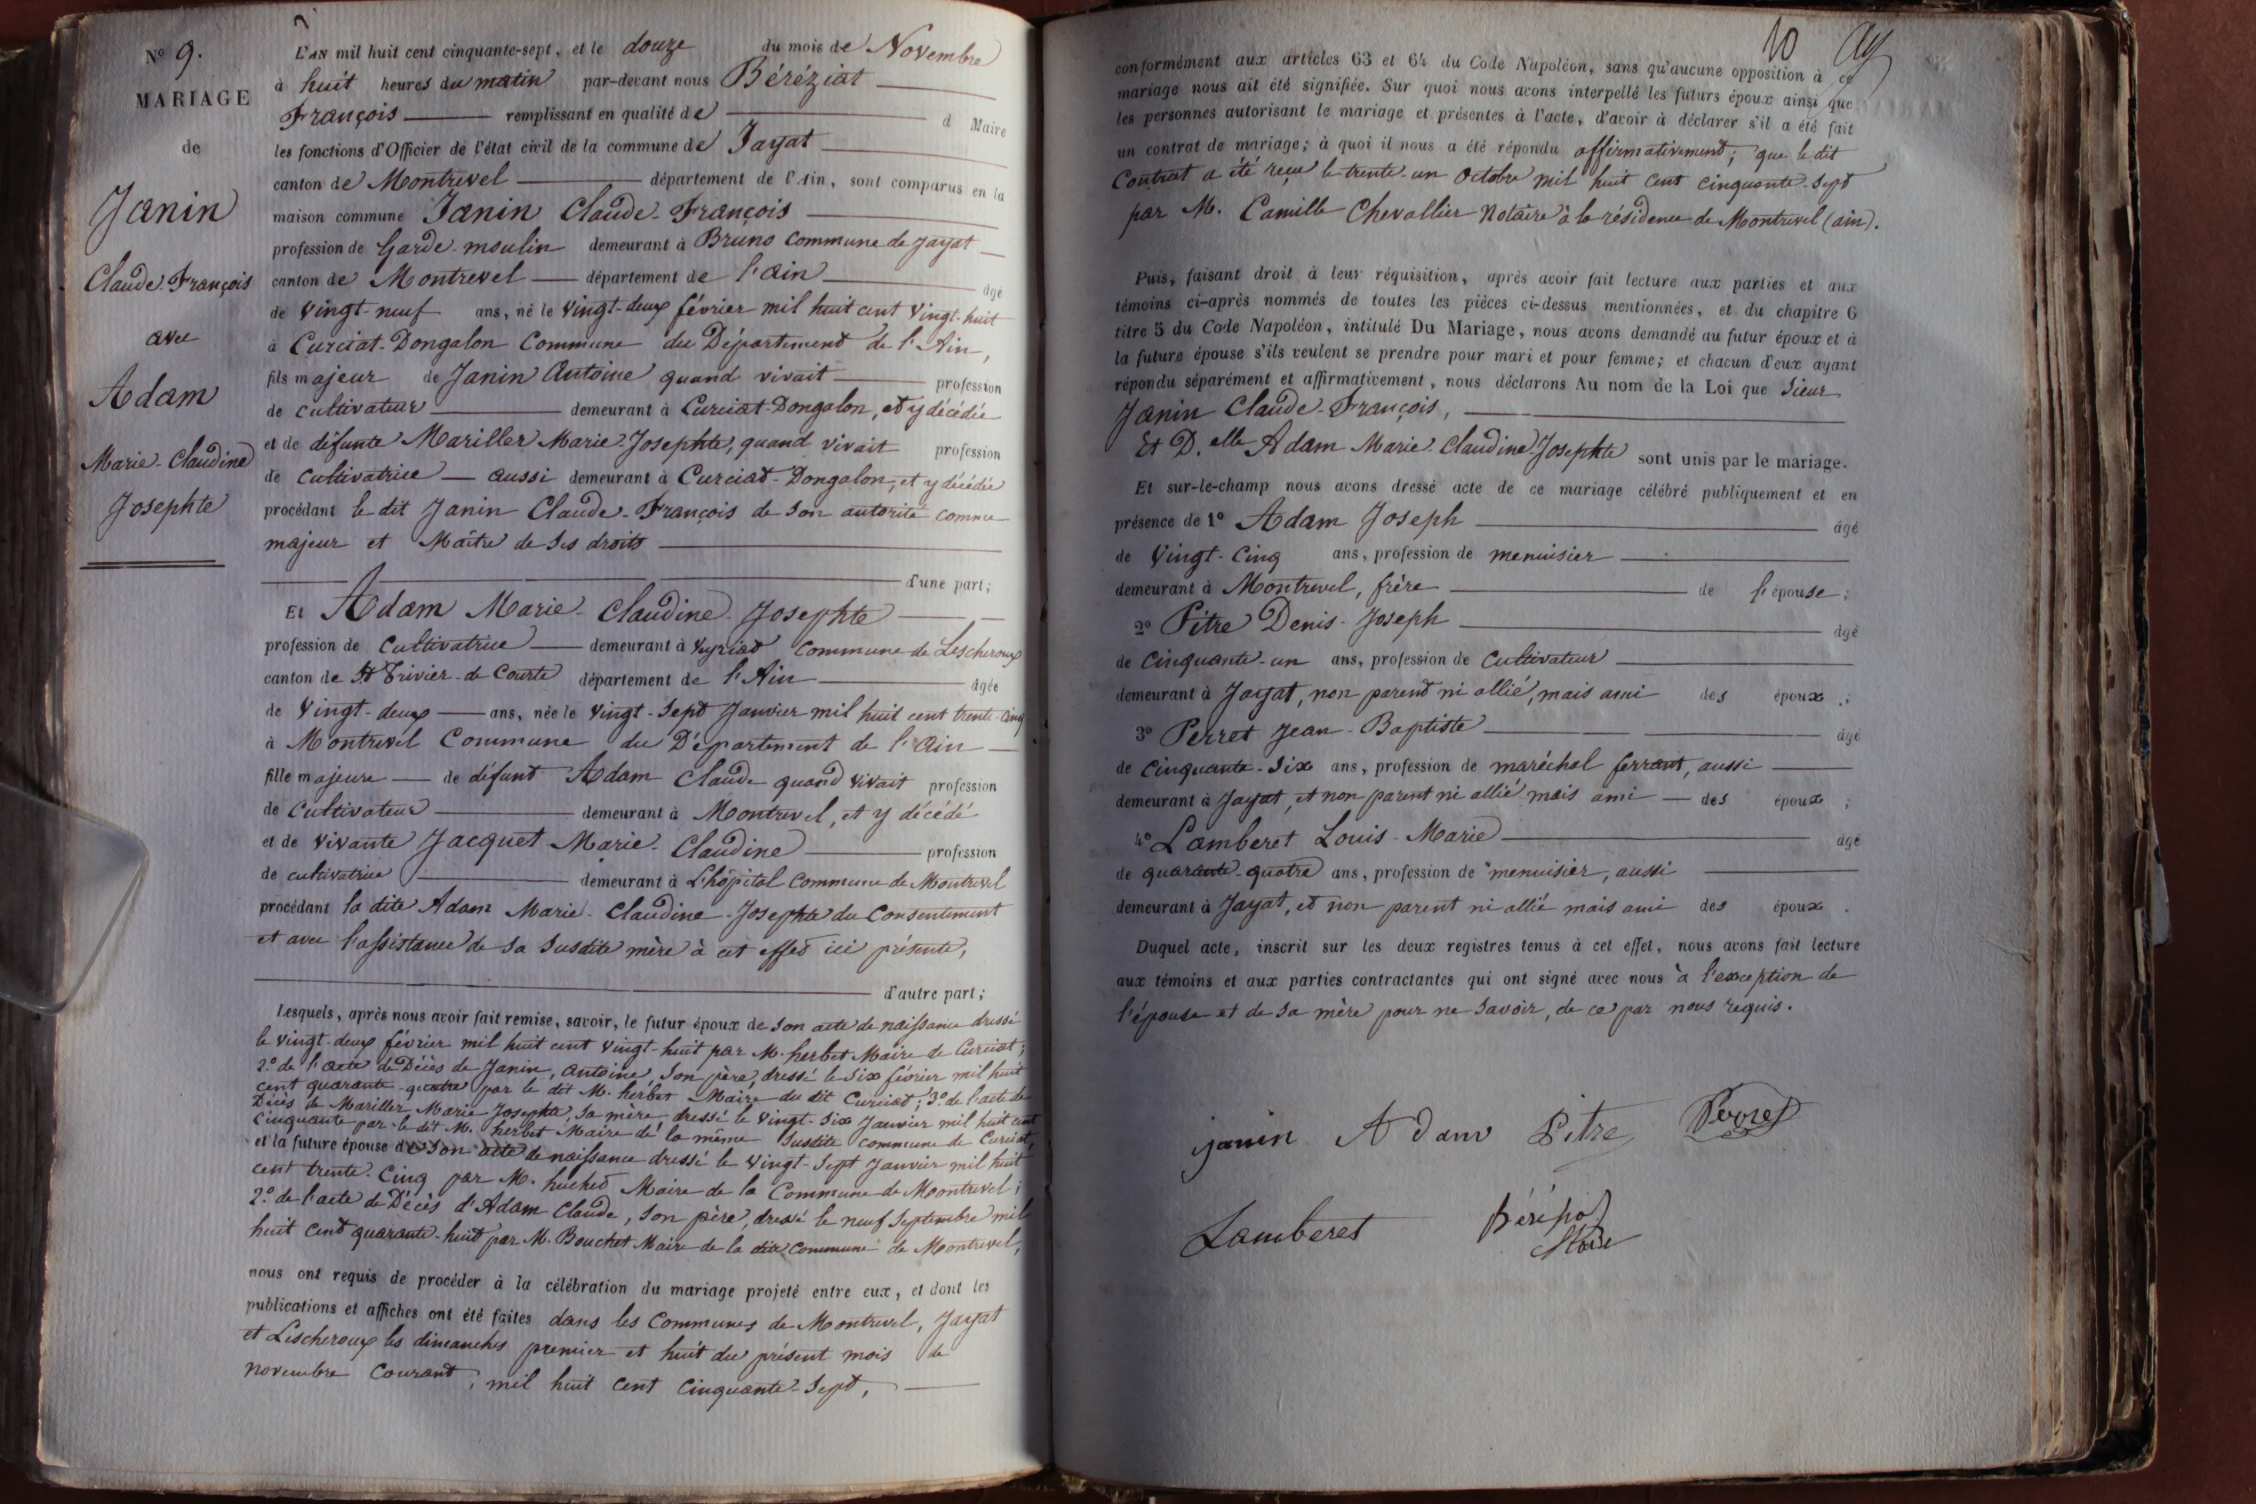 Nº 9.
MARIAGE
de
Janin
Claude-François
avec
Adam
Marie-Claudine
Josephte
L'AN mil huit cent cinquante-sept, et le douze du mois de Novembre
à huit heures du matin par-devant nous Béréziat
François remplissant en qualité de d Maire
les fonctions d'Officier de l'état civil de la commune de Jayat
canton de Montrevel département de l'Ain, sont comparus en la
maison commune Janin Claude-François
profession de Garde-moulin demeurant à Bruno Commune de Jayat
canton de Montrevel département de l'ain âgé
de Vingt-neuf ans, né le Vingt-deux février mil huit cent Vingt-huit
à Curciat-Dongalon Commune du Département de l'Ain,
fils majeur de Janin Antoine quand vivait profession
de cultivateur demeurant à Curciat-Dongalon, et y décédée
et de défunte Mariller Marie-Josephte, quand vivait profession
de cultivatrice aussi demeurant à Curciat-Dongalon, et y décédée
procédant le dit Janin Claude-François de son autorité comme
majeur et Maître de ses droits
d'une part;
Et Adam Marie-Claudine-Josephte
profession de Cultivatrice demeurant à Veyriat Commune de Lescheroux
canton de St Trivier-de Courte département de l'Ain âgée
de Vingt-deux ans, née le Vingt-Sept Janvier mil huit cent trente-cinq
à Montrevel Commune du Département de l'ain
fille majeure de défunt Adam Claude quand vivait profession
de Cultivateur demeurant à Montrevel, et y décédé
et de vivante Jacquet Marie-Claudine profession
de cultivatrice demeurant à L'hôpital Commune de Montrevel
procédant la dite Adam Marie-Claudine-Josephte du Consentement
et avec l'assistance de sa susdite mère à cet effet ici présente,
d'autre part;
Lesquels, après nous avoir fait remise, savoir, le futur époux de son acte de naissance dressé
le vingt-deux février mil huit cent vingt-huit par M. herbet Maire de Curciat;
2º de l'acte de Décès de Janin, Antoine son père, dressé le six février mil huit
cent quarante-quatre par le dit M. herbet Maire du dit Curciat; 3º de l'acte de
Décès de Mariller Marie Josephte, sa mère dressé le Vingt-Six Janvier mil huit cent
cinquante par le dit M. herbet Maire de la même susdite commune de Curciat,
et la future épouse de son acte de naissance dressé le Vingt-Sept Janvier mil huit
cent trente-cinq par M. huchet Maire de la Commune de Montrevel;
2º de l'acte de Décès d'Adam Claude, son père, dressé le neuf Septembre mil
huit cent quarante-huit par M. Bouchet Maire de la dite Commune de Montrevel,
nous ont requis de procéder à la célébration du mariage projeté entre eux, et dont les
publications et affiches ont été faites dans les Communes de Montrevel, Jayat
et Lescheroux les dimanches premier et huit du présent mois de
novembre Courant, mil huit cent cinquante-Sept,
10
conformément aux articles 63 et 64 du Code Napoléon, sans qu'aucune opposition à ce
mariage nous ait été signifiée. Sur quoi nous avons interpellé les futurs époux ainsi que
les personnes autorisant le mariage et présentes à l'acte, d'avoir à déclarer s'il a été fait
un contrat de mariage; à quoi il nous a été répondu affirmativement; que le dit
Contrat a été reçu le trente-un Octobre mil huit cent cinquante-Sept
par M. Camille Chevallier Notaire à la résidence de Montrevel (ain).
Puis, faisant droit à leur réquisition, après avoir fait lecture aux parties et aux
témoins ci-après nommés de toutes les pièces ci-dessus mentionnées, et du chapitre 6
titre 5 du Code Napoléon, intitulé Du Mariage, nous avons demandé au futur époux et à
la future épouse s'ils veulent se prendre pour mari et pour femme; et chacun d'eux ayant
répondu séparément et affirmativement, nous déclarons Au nom de la Loi que Sieur
Janin Claude-François,
Et D.elle Adam Marie-Claudine Josephte sont unis par le mariage.
Et sur-le-champ nous avons dressé acte de ce mariage célébré publiquement et en
présence de 1º Adam Joseph âgé
de Vingt-Cinq ans, profession de menuisier
demeurant à Montrevel, frère de l'épouse;
2º Pitre Denis-Joseph âgé
de Cinquante-un ans, profession de Cultivateur
demeurant à Jayat, non parent ni allié, mais ami des époux;
3º Perret Jean-Baptiste âgé
de Cinquante-Six ans, profession de maréchal ferrant, aussi
demeurant à Jayat, et non parent ni allié mais ami des époux;
4º Lamberet Louis-Marie âgé
de quarante-quatre ans, profession de menuisier, aussi
demeurant à Jayat, et non parent ni allié mais ami des époux.
Duquel acte, inscrit sur les deux registres tenus à cet effet, nous avons fait lecture
aux témoins et aux parties contractantes qui ont signé avec nous à l'exception de
l'épouse et de sa mère pour ne savoir, de ce par nous requis.
janin Adam Pitre Perret
Lamberet Béréziat
Maire